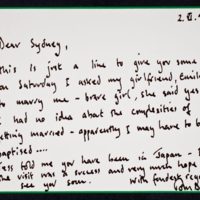 2.VI.9
Dear Sydney,
This is just a line to give you some
on Saturday I asked my girlfriend, Emil
to marry me - brave girl, she said yes
I had no idea about the complexities of
getting married - apparently I may have to b
baptised ....
told me you have been in Japan -
the visit was a success and very much hope
see you soon.
with fondest reg